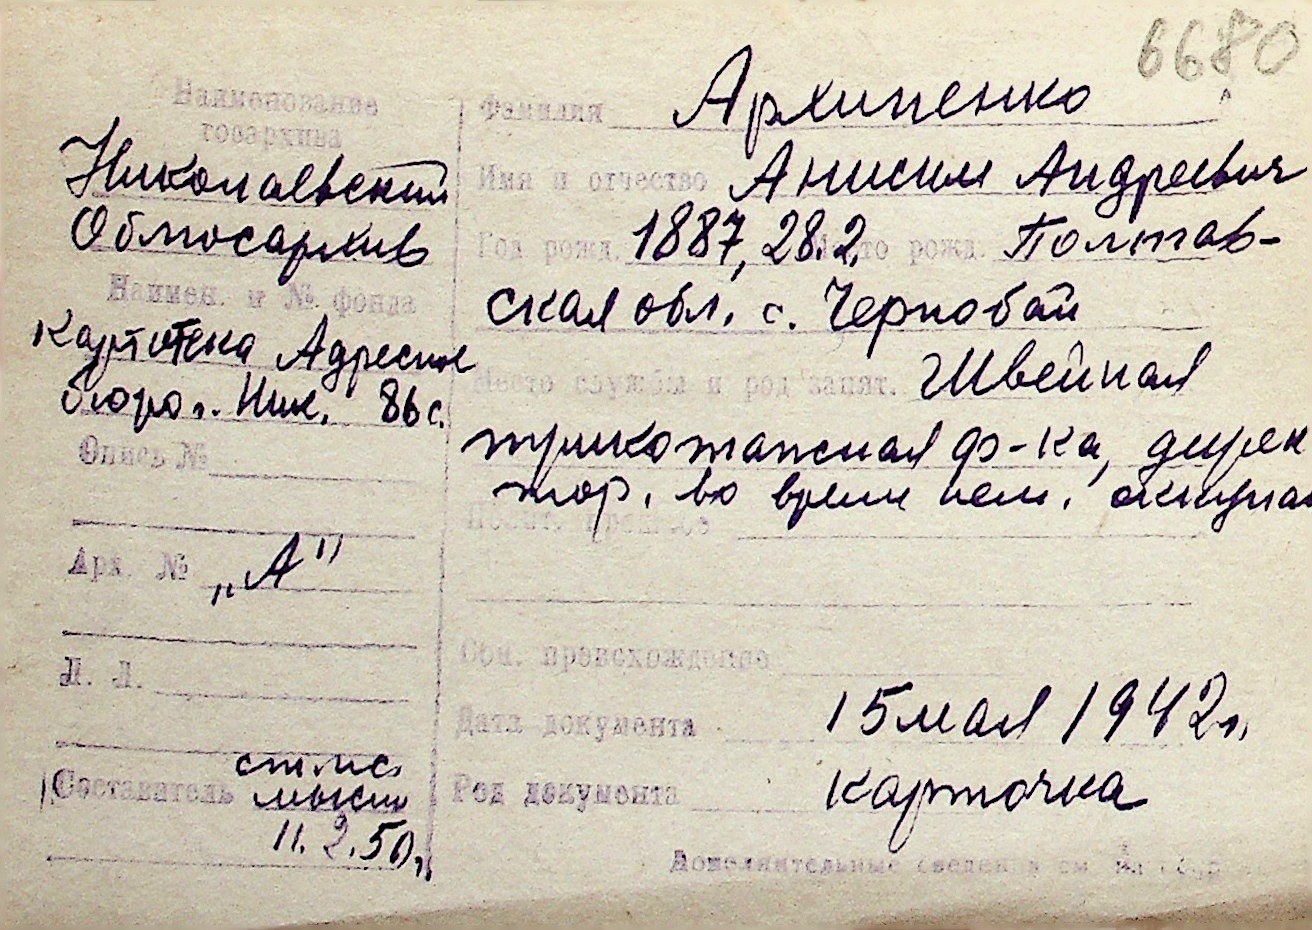 6680
Наименование
госархива
Николаевский
Облгосархив
Наимен. и № фонда
Картотека Адресное
бюро г. Ник. 86 с.
Опись №
Арх. № „А"
Л. Л.
Составитель ст. н. с.
11.2.50 г.
Фамилия Архипенко
Имя и отчество Анисим Андреевич
Год рожд. 1887, 28.2. Место рожд. Полтав-
ская обл. с. Чернобай
Место службы и род занят. Швейная
трикотажная ф-ка, дирек
тор. во время нем. оккупа
Соц. происхождение
Дата документа 15 мая 1942 г.
Род документа карточка
Дополнительные сведения см